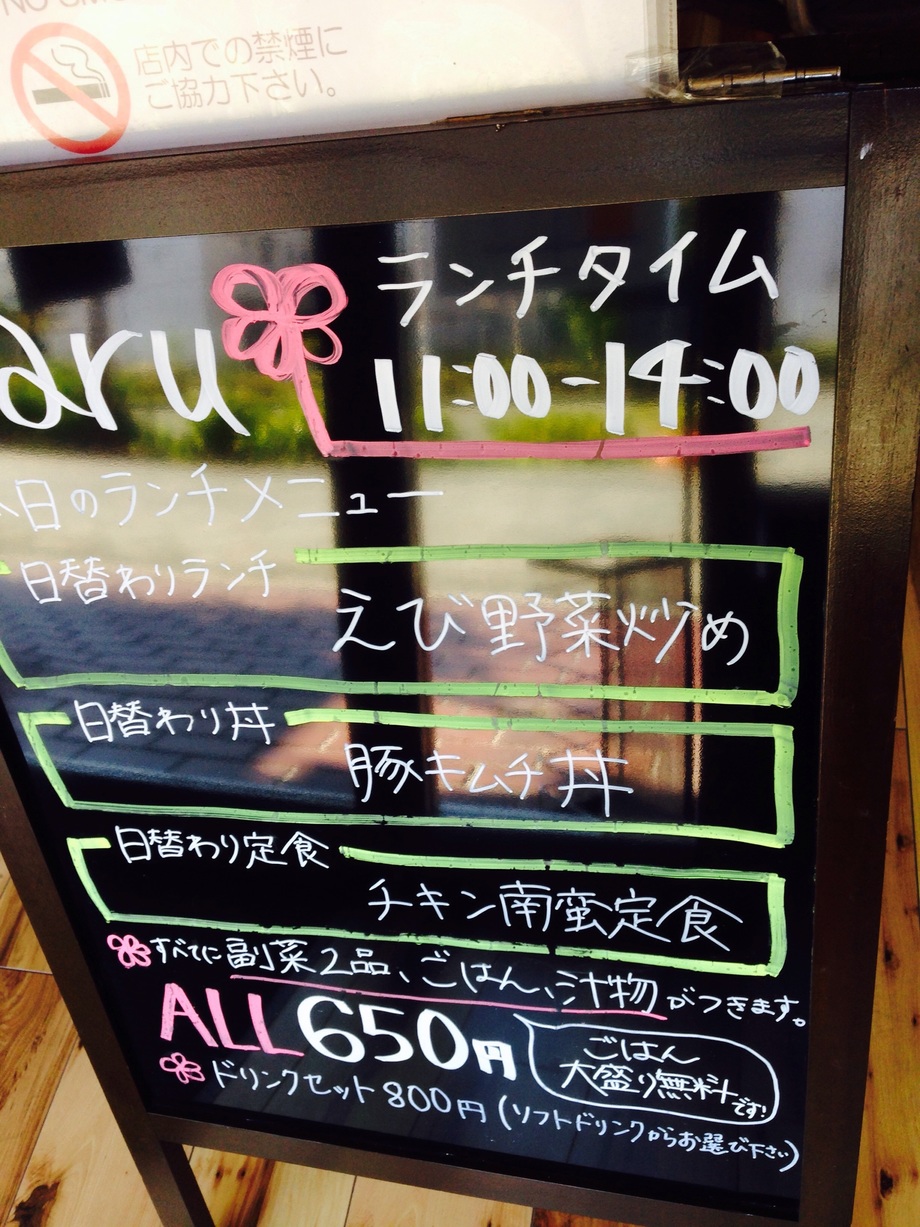 店内での禁煙に
ご協力下さい。
aru
ランチタイム
11:00-14:00
日のランチメニュー
日替わりランチ
えび野菜炒め
日替わり丼
豚キムチ丼
日替わり定食
チキン南蛮定食
すべてに副菜2品、ごはん、汁物がつきます。
ALL 650円
ごはん
大盛り無料です!
ドリンクセット 800円 (ソフトドリンクからお選び下さい)